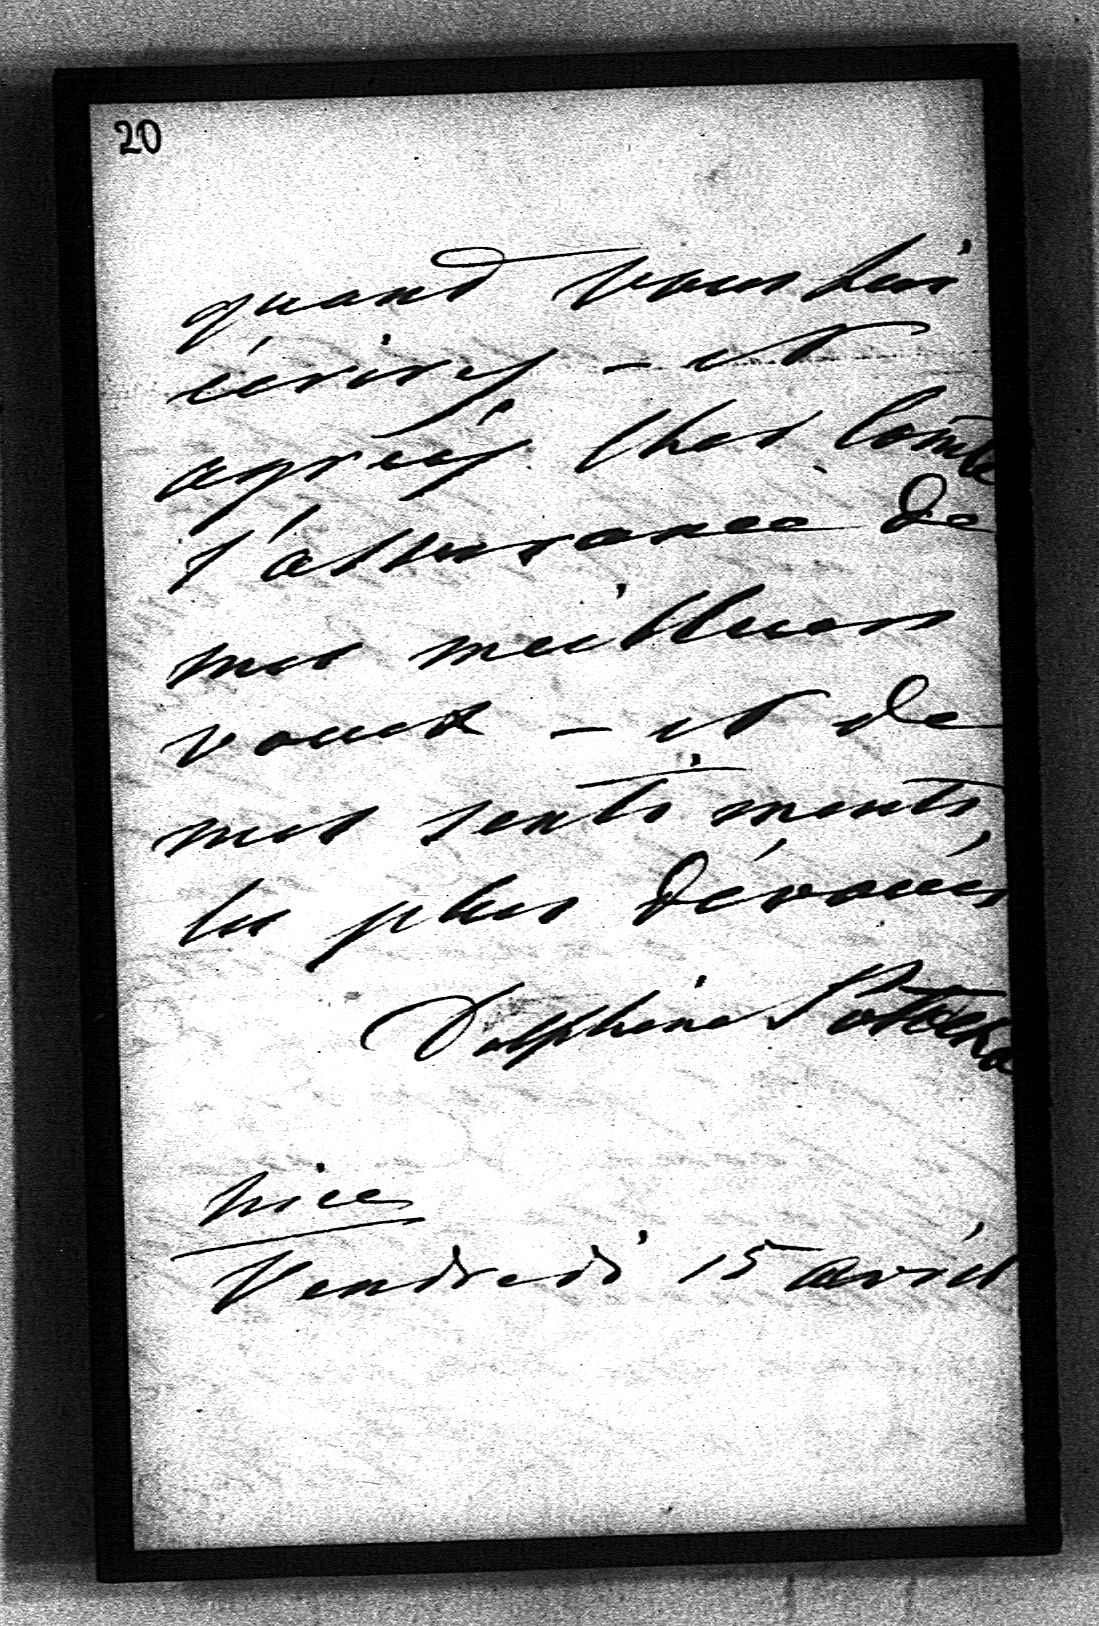 20
quand vous lui
écirirez - et
agréez cher Comte
l'assurance de
mes meilleurs
voeux - et de
mes sentiments
les plus dévoués
Delphine Potocka
Nice
Vendredi 15 avril